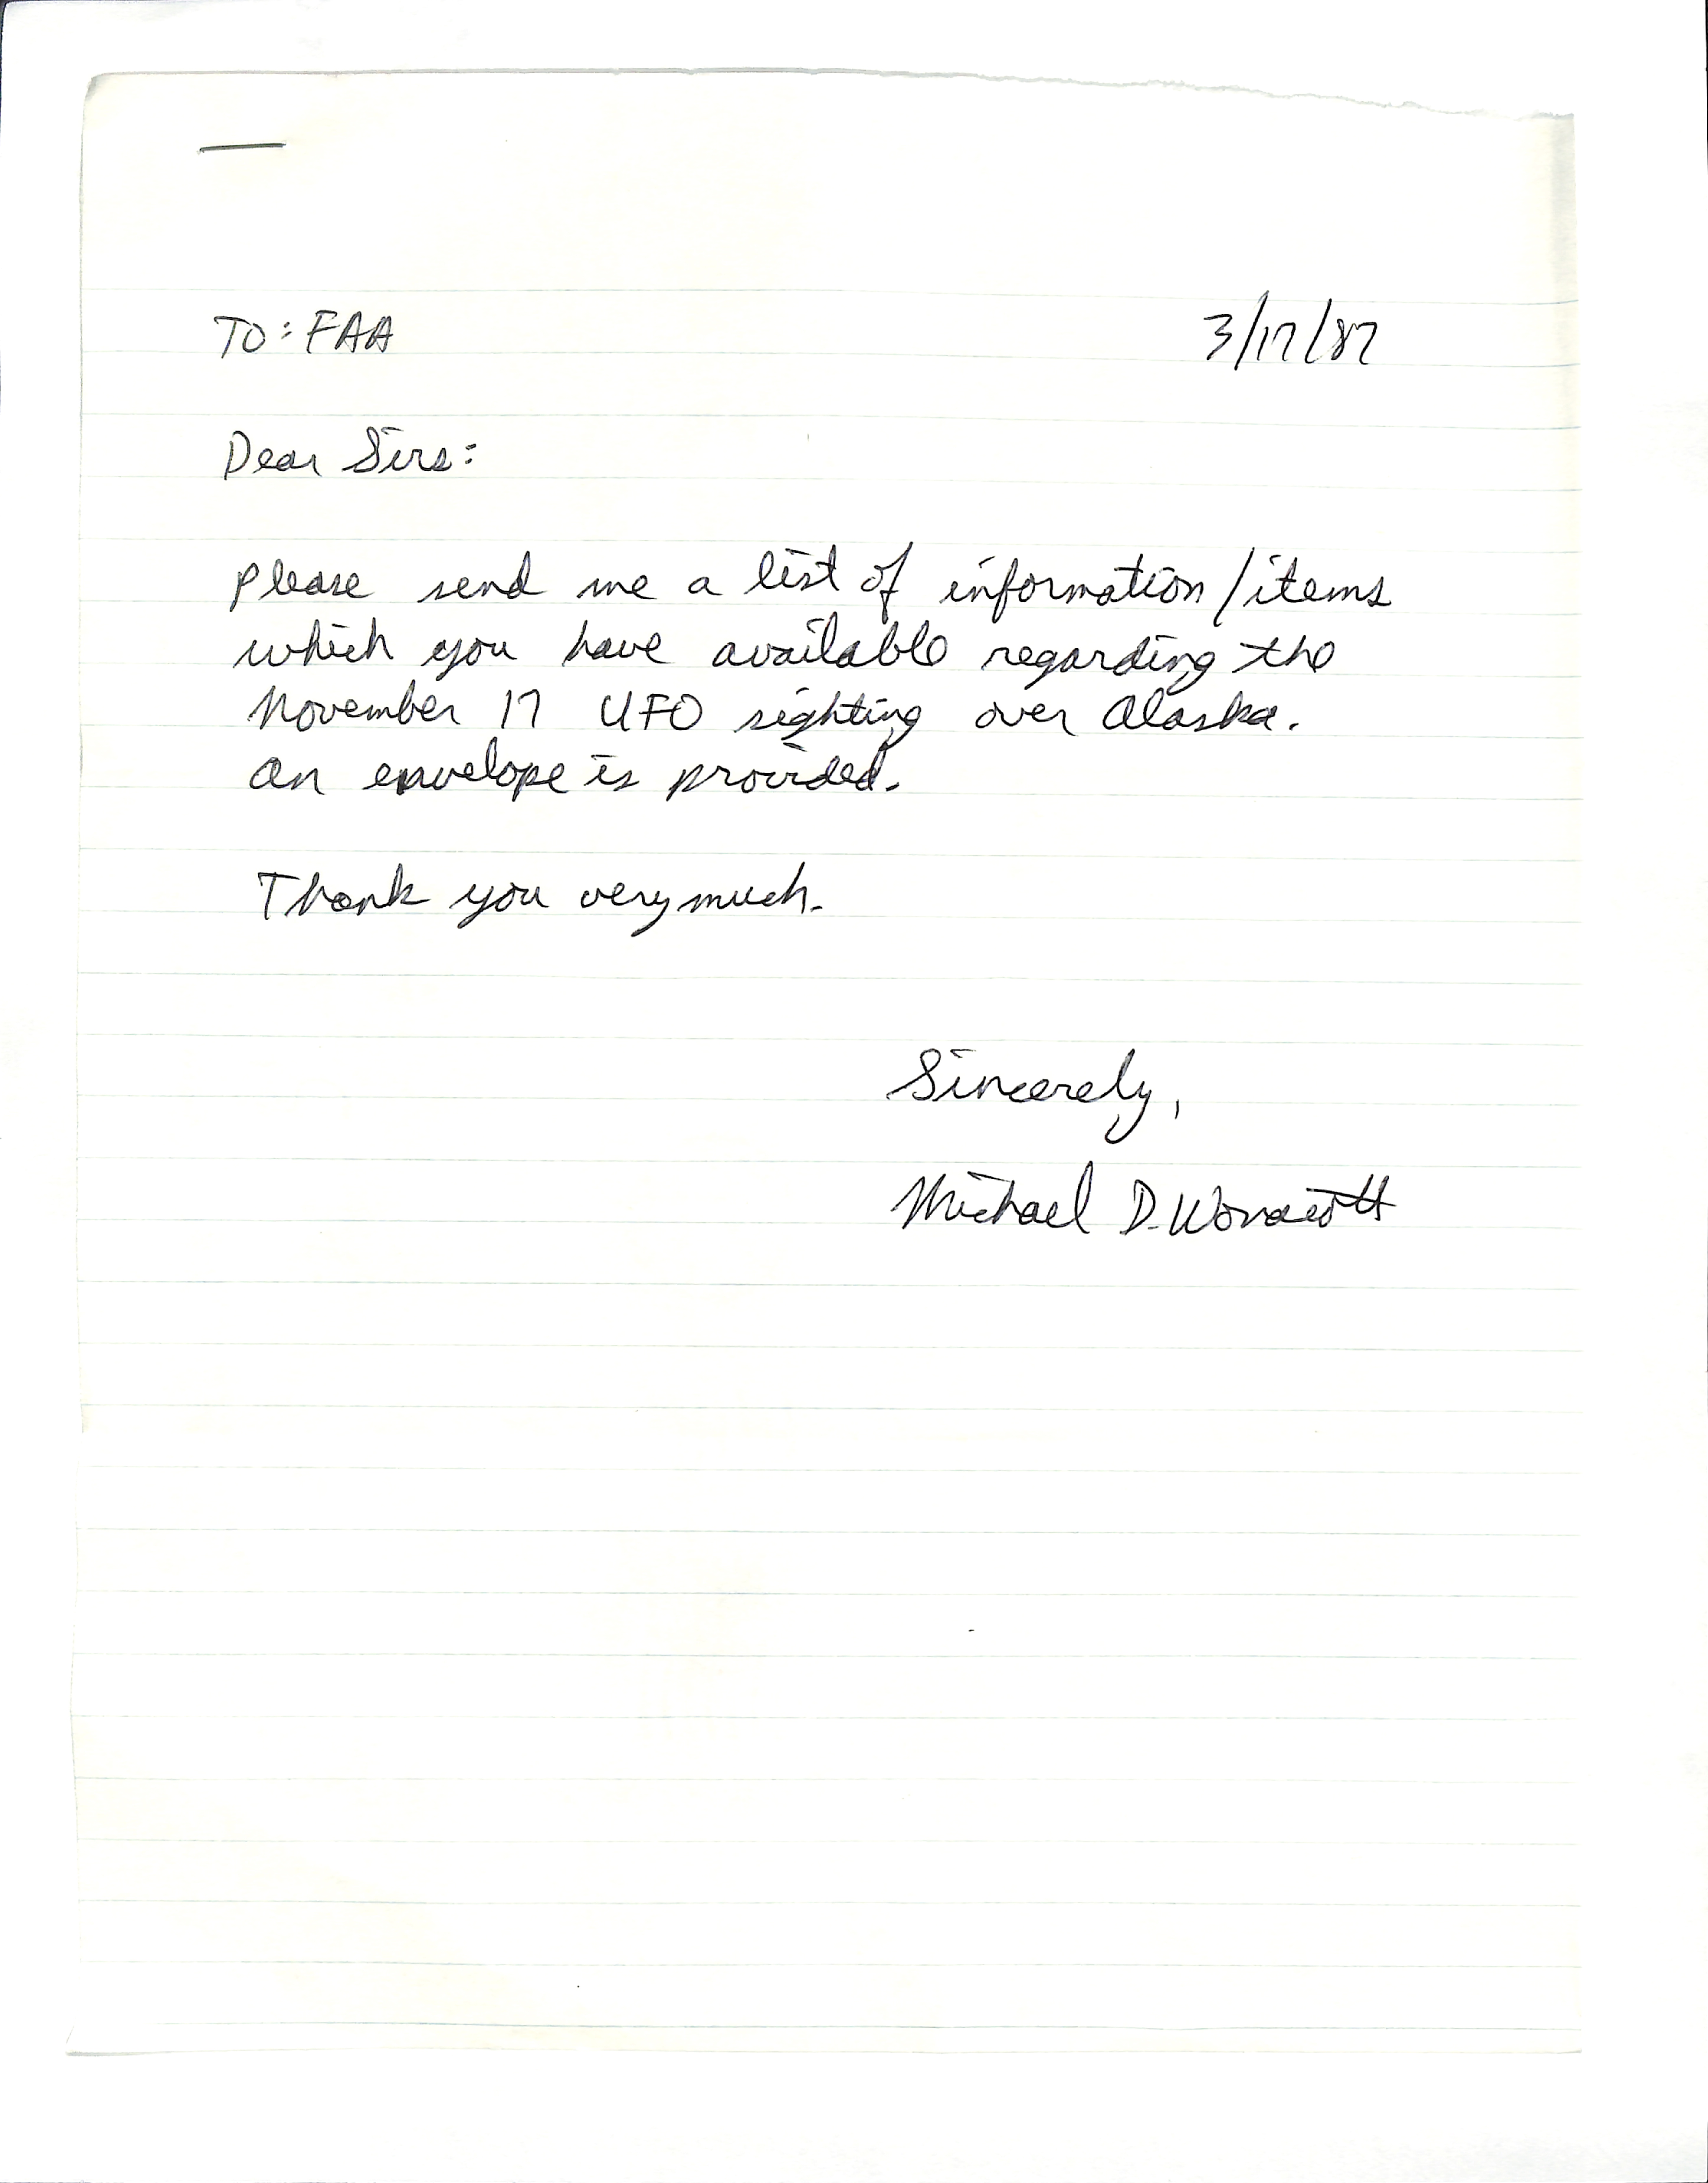 TO: FAA 3/17/87
Dear Sirs:
Please send me a list of information/items
which you have available regarding the
November 17 UFO sighting over Alaska.
An envelope is provided.
Thank you very much.
Sincerely,
Michael D. Wonacott